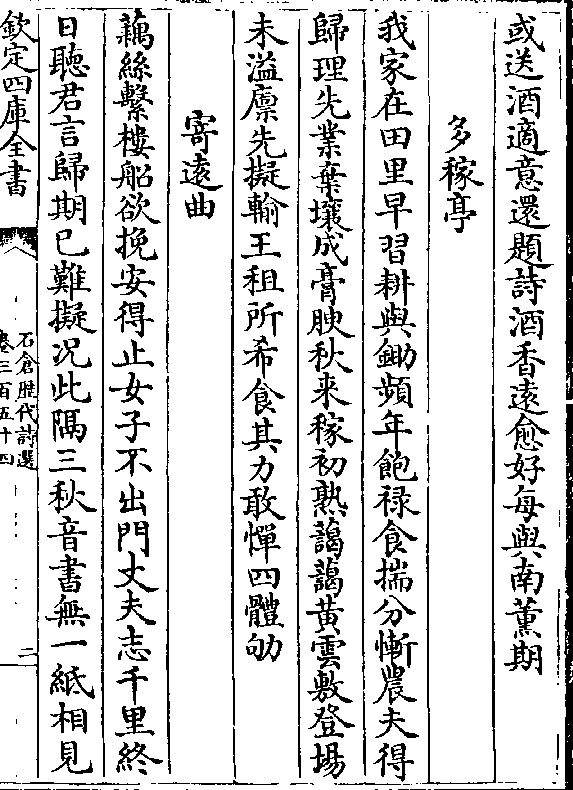 或送酒適意還題詩酒香遠愈好每與南薰期
多稼亭
我家在田里早習耕與鋤頻年飽禄食揣分慚農夫得
歸理先業棄壤成膏腴秋来稼初熟藹藹黄雲敷登場
未溢廪先擬輸王租所希食其力敢憚四體劬
寄遠曲
藕絲繫樓船欲挽安得止女子不出門丈夫志千里終
日聽君言歸期已難擬况此隔三秋音書無一紙相見
欽定四庫全書
石倉歴代詩選
卷三百五十四
二